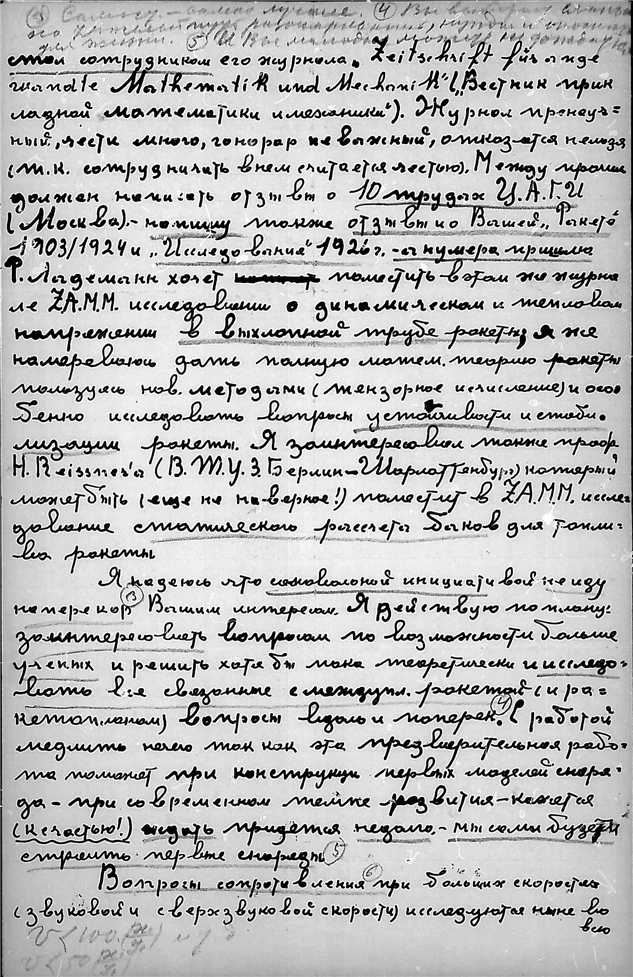 ③ Самому – самое лучшее. ④ Вы
для жизни. ⑤ И Вы молоды,
стал сотрудником его журнала „Zeitschrift für ange
wandte Mathematik und Mechanik" („Вестник прик
ладной математики и механики"). Журнал пренауч-
ный, чести много, гонорар не важный, отказатся нельзя
(т.к. сотрудничать в нем считается честью). Между прочим
должен написать отзывы о 10 трудах Ц.А.Г.И
(Москва). – напишу также отзывы о Вашей „Ракете"
1903/1924 и „Исследование" 1926 г. – а нумера пришлю
Р. Ладеманн хочет поместить в этом же журна
ле Z.A.M.M. исследования о динамическом и тепловом
напряжении в выхлопной трубе ракеты; я же
намереваюсь дать полную матем. теорию ракеты
пользуясь нов. методами (тензорное исчисление) и осо
бенно исследовать вопросы устойчивости и стаби.
лизации ракеты. Я заинтересовал также проф
H. Reissner'a (В.Т.У.З. Берлин–Шарлоттенбург) который
может быть (еще не наверное!) поместит в Z.A.M.M. иссле-
дование статического рассчета баков для топли-
ва ракеты
Я надеюсь что самовольной инициативой не иду
наперекор ③ Вашим интересам. Я действую по плану:
заинтересовать вопросом по возможности больше
ученых и решить хотя бы пока теоретически и исследо-
вать все связанные с междупл. ракетой (и ра-
кетопланом) вопросы вдоль и поперек. ④ С работой
медлить нечего так как эта предварительная рабо-
та поможет при конструкции первых моделей снаря-
да – при современном темпе развития – кажется
(к счастью!) ждать придется недолго, – мы сами будем
строить первые снаряды ⑤
Вопросы сопротивления ⑥ при больших скоростях
(звуковой и сверхзвуковой скорости) исследуются ныне во
всю